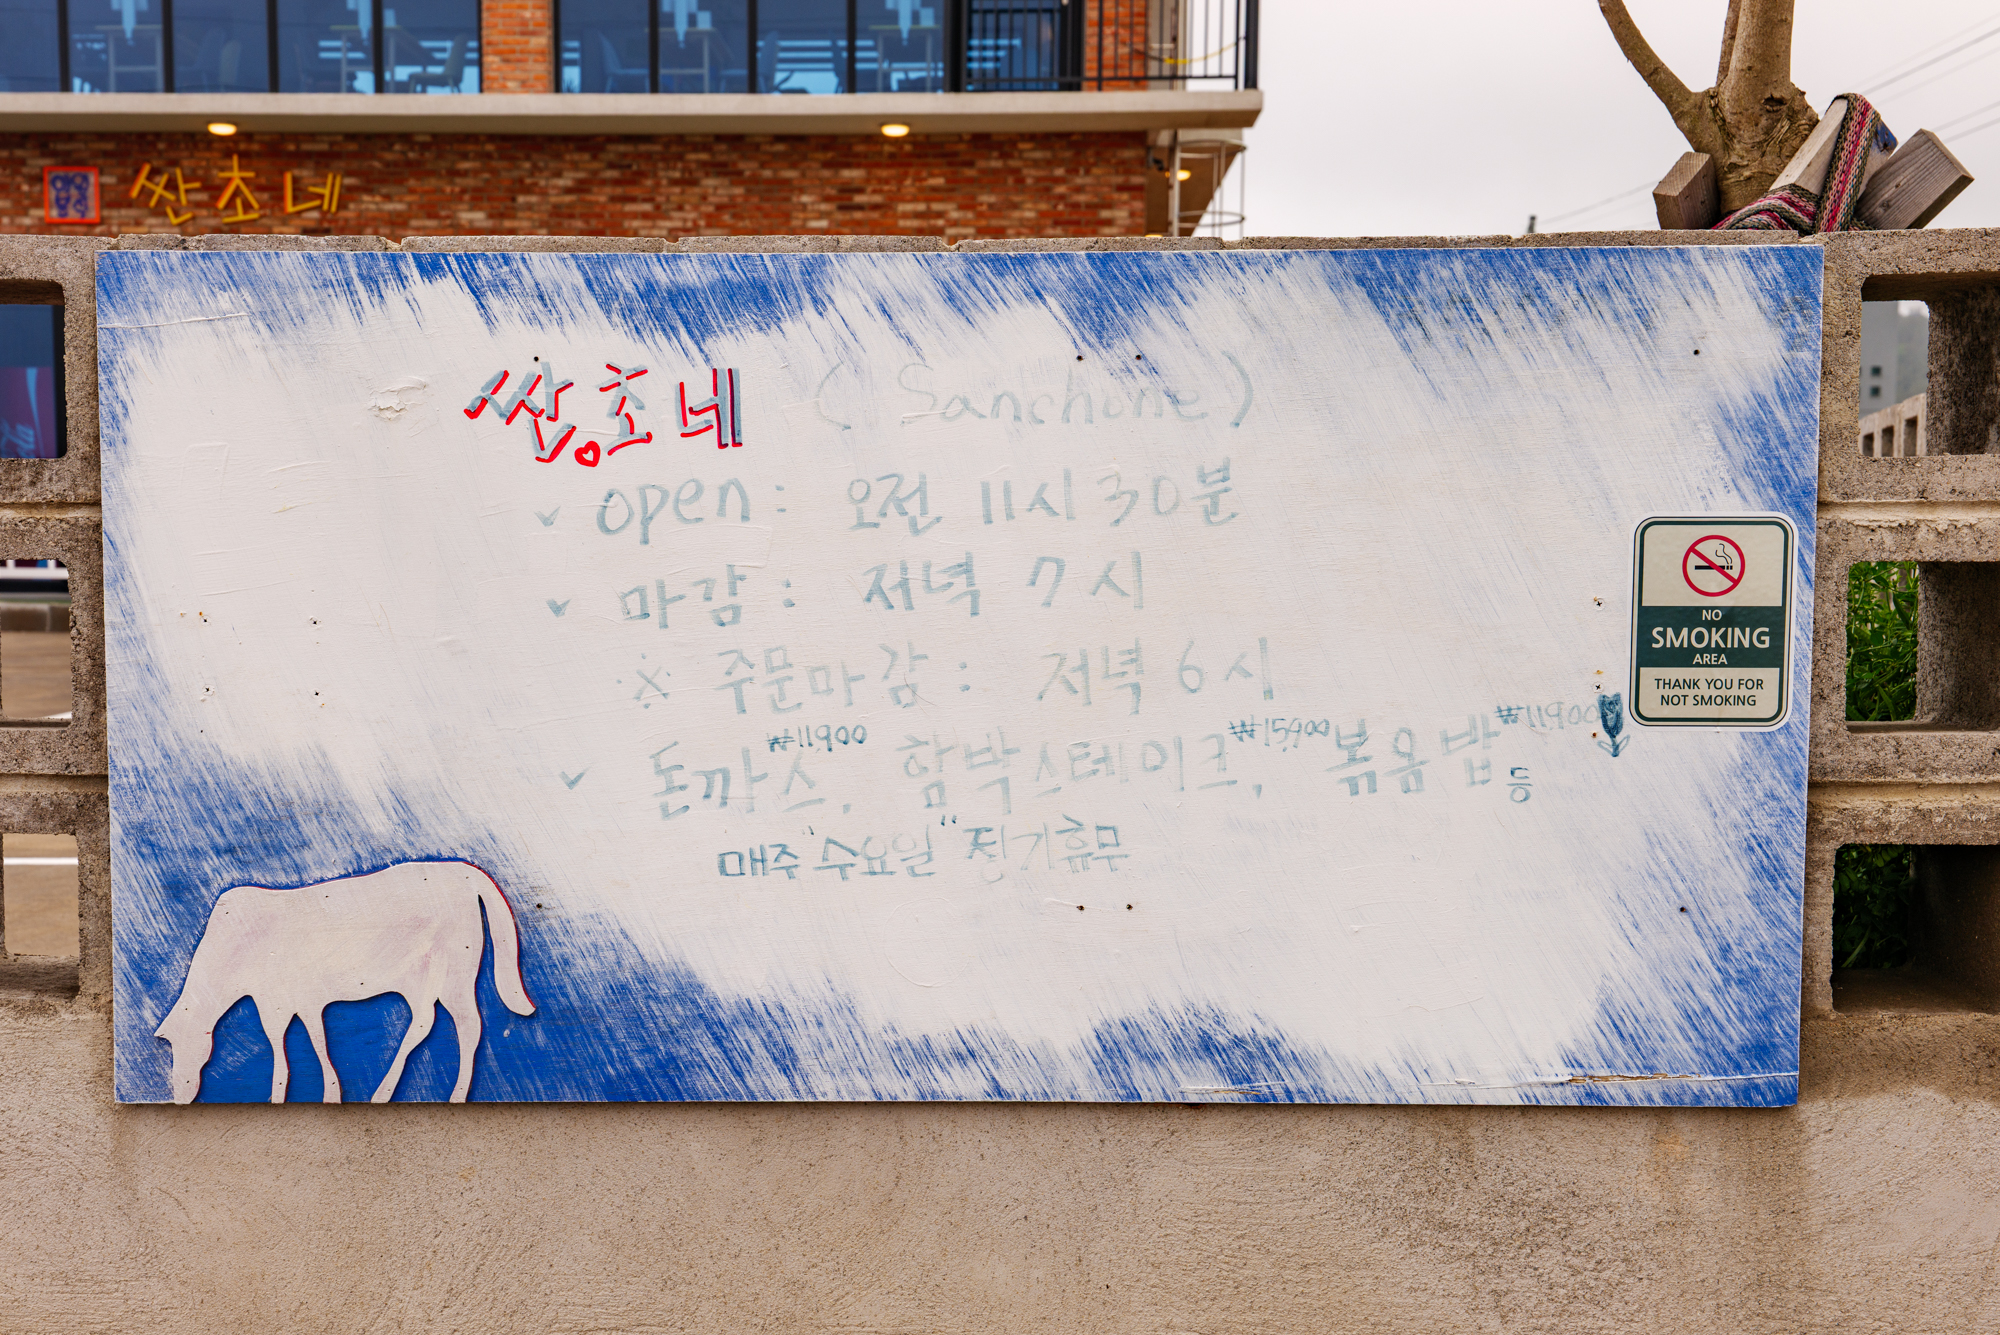 쌴초네
쌴초네 ( Sanchone )
✓ open : 오전 11시 30분
✓ 마감 : 저녁 7시
※ 주문마감 : 저녁 6시
✓ 돈까스 ₩11,900, 함박스테이크 ₩15,900, 볶음밥 ₩11,900 등
매주 "수요일" 정기휴무
NO
SMOKING
AREA
THANK YOU FOR
NOT SMOKING